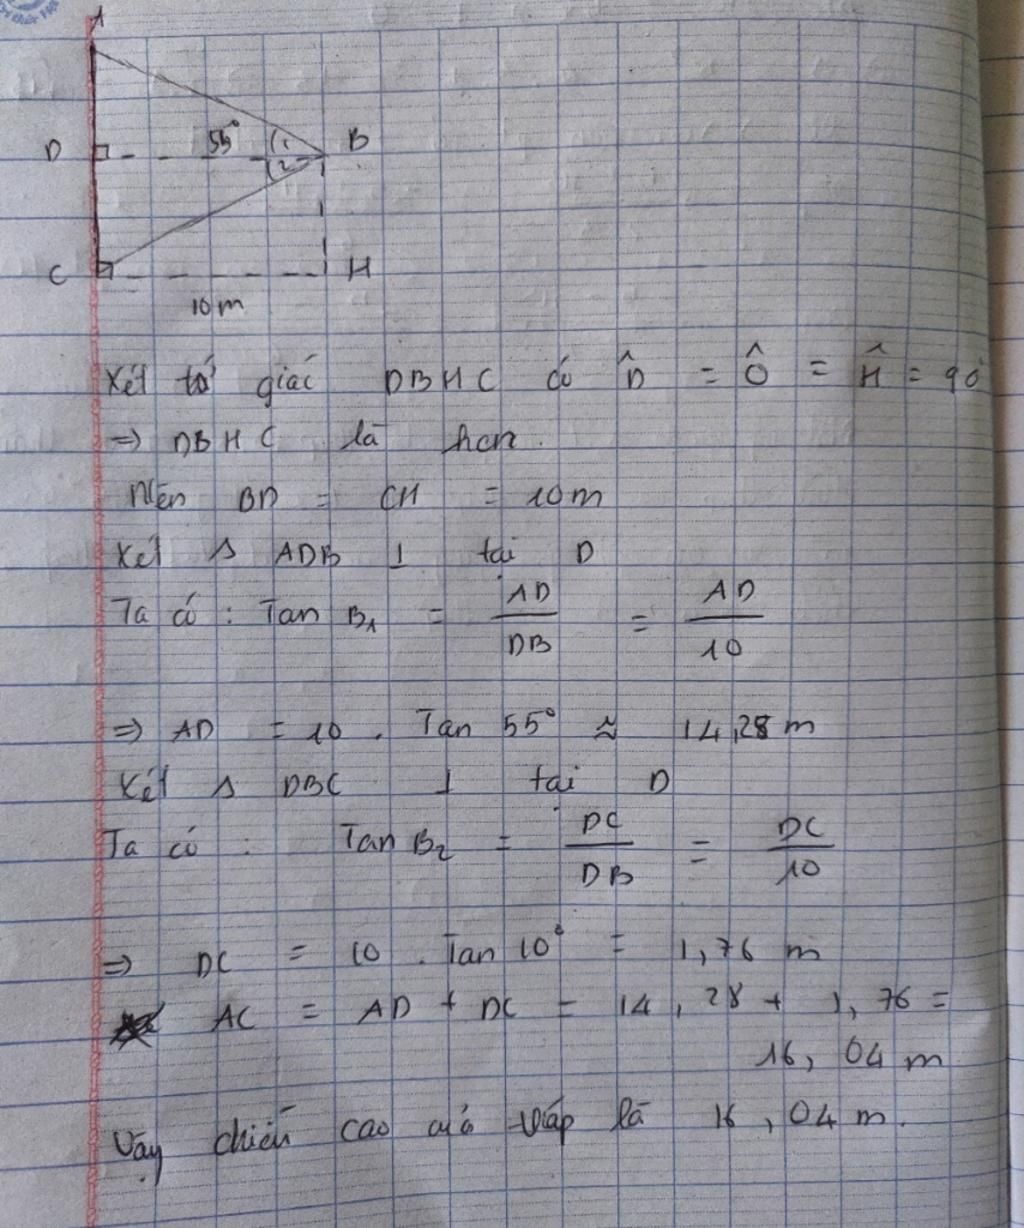 A
D 55° 1 B
2
C H
10m
Xét tứ giác DBHC có D̂ = Ĉ = Ĥ = 90
⇒ DBHC là hcn.
Nên BD = CH = 10m
Xét Δ ADB ⊥ tại D
Ta có : Tan B₁ = AD/DB = AD/10
⇒ AD = 10 . Tan 55° ≈ 14,28 m
Xét Δ DBC ⊥ tại D
Ta có : Tan B₂ = DC/DB = DC/10
⇒ DC = 10 . Tan 10° = 1,76 m
AC = AD + DC = 14,28 + 1,76 =
16,04 m
Vậy chiều cao của tháp là 16,04 m.